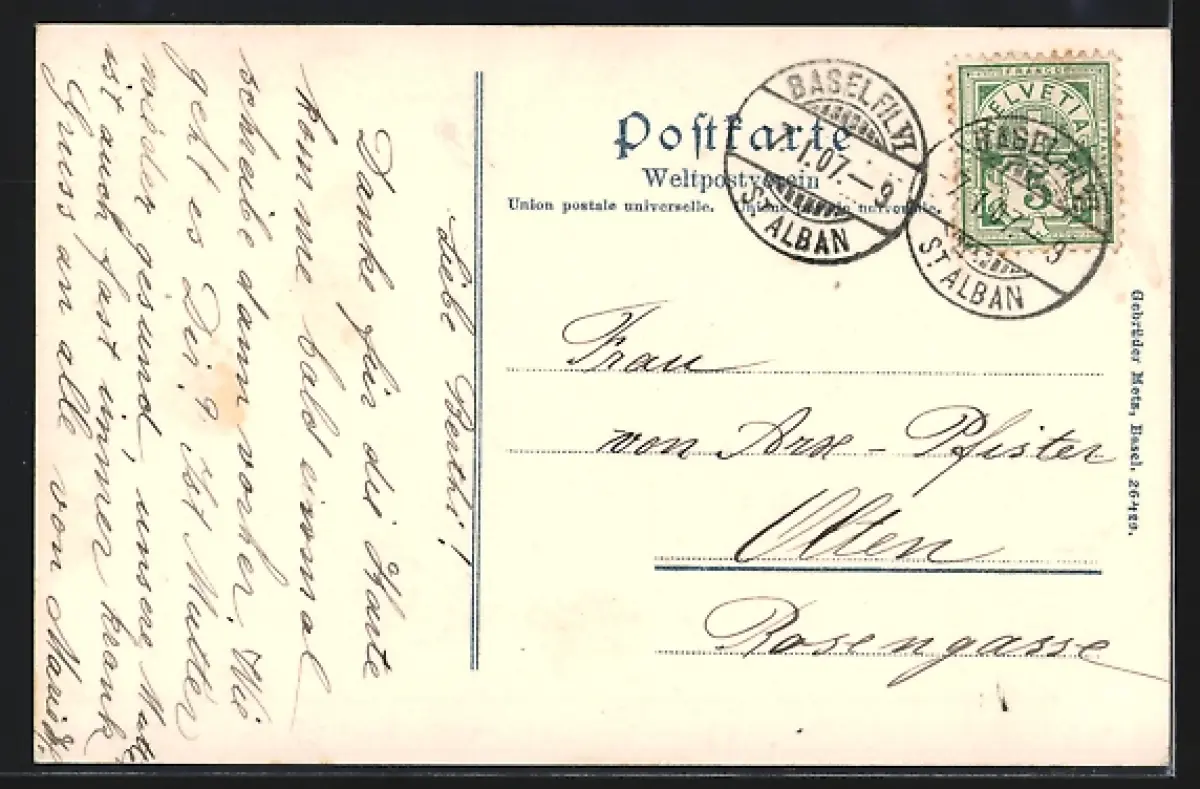 Postkarte
Weltpostverein
Union postale universelle. Unione postale universale.
BASEL FIL. VI
7.I.07.–9
ST. ALBAN
FRANCO
HELVETIA
5
BASEL FIL. VI
7.I.07.–9
ST. ALBAN
Frau
von Arx - Pfister
Olten
Rosengasse
Gebrüder Metz, Basel. 26429.
Liebe Berthi!
Danke für die Karte
komme bald einmal
schreibe dann vorher. Wie
geht es Dir? Ist Mutter
wieder gesund, unsere
ist auch fast immer krank
Gruss an alle von Marie